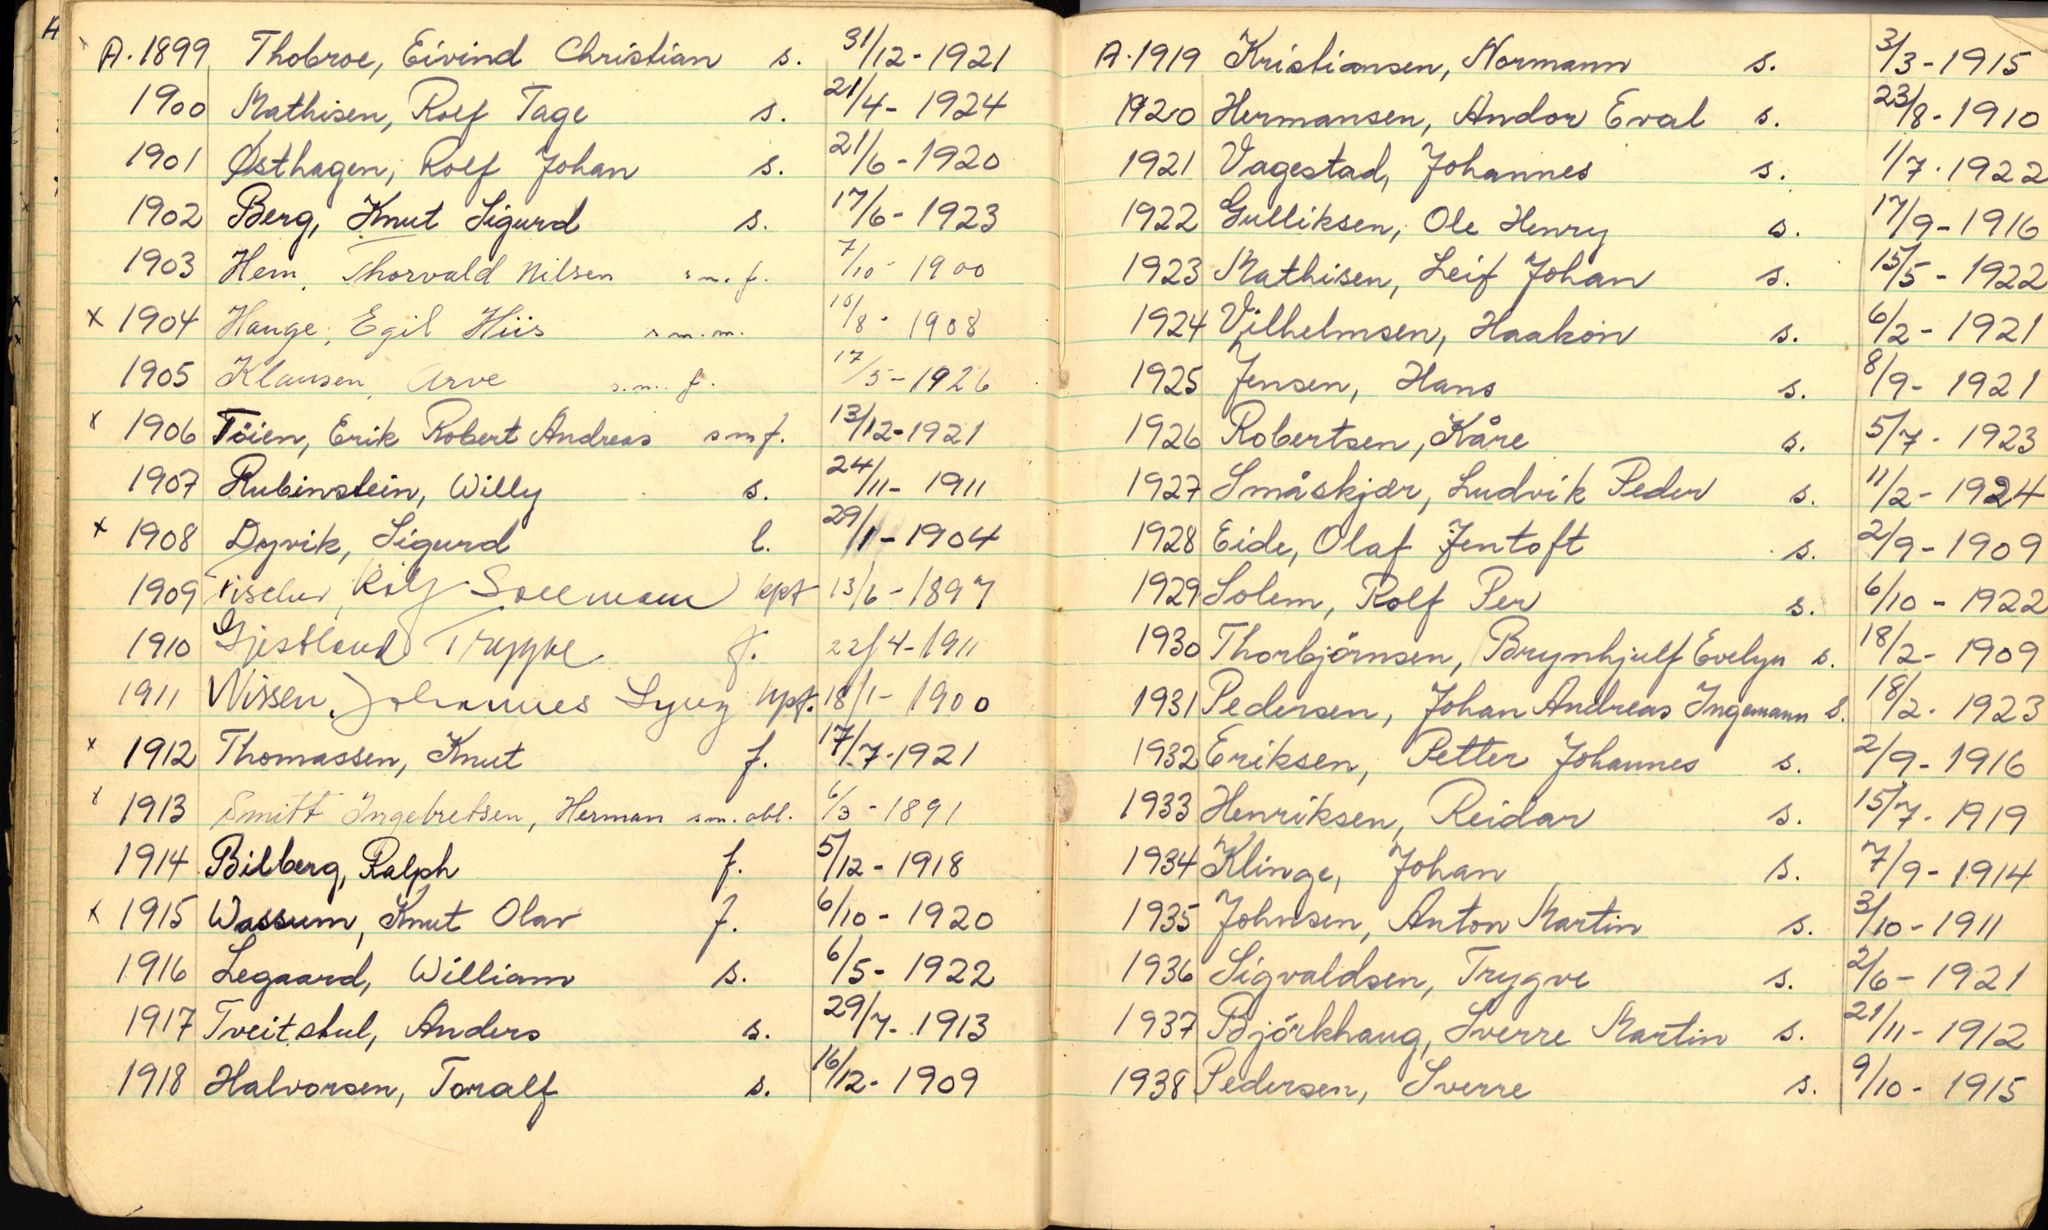 A. 1899 Thobroe, Eivind Christian s. 31/12 - 1921
1900 Mathisen, Rolf Tage s. 21/4 - 1924
1901 Østhagen, Rolf Johan s. 21/6 - 1920
1902 Berg, Knut Sigurd s. 17/6 - 1923
1903 Hem, Thorvald Nilsen s.m.f. 7/10 - 1900
x 1904 Hauge, Egil Hiis s.m.m. 10/8 - 1908
1905 Klausen, Arve s.m. f. 17/5 - 1926
x 1906 Töien, Erik Robert Andreas smf. 13/12 - 1921
1907 Rubinstein, Willy s. 24/11 - 1911
x 1908 Dyvik, Sigurd l. 29/1 - 1904
1909 Fischer, Rolf kpt 13/6 - 1897
1910 Gjestland Trygve f. 22/4 - 1911
1911 Nissen, Johannes Lyng kpt. 18/1 - 1900
x 1912 Thomassen, Knut f. 17/7 - 1921
x 1913 Smitt Ingebretsen, Herman sm. obl. 6/3 - 1891
1914 Bilberg, Ralph f. 5/12 - 1918
x 1915 Wassum, Knut Olav f. 6/10 - 1920
1916 Legaard, William s. 6/5 - 1922
1917 Tveitstul, Anders s. 29/7 - 1913
1918 Halvorsen, Toralf s. 16/12 - 1909
A. 1919 Kristiansen, Normann s. 3/3 - 1915
1920 Hermansen, Andor Eval s. 23/8 - 1910
1921 Vagestad, Johannes s. 1/7 - 1922
1922 Gulliksen, Ole Henry s. 17/9 - 1916
1923 Mathisen, Leif Johan s. 15/5 - 1922
1924 Vilhelmsen, Haakon s. 6/2 - 1921
1925 Jensen, Hans s. 8/9 - 1921
1926 Robertsen, Kåre s. 5/7 - 1923
1927 Småskjær, Ludvik Peder s. 11/2 - 1924
1928 Eide, Olaf Jentoft s. 2/9 - 1909
1929 Solem, Rolf Per s. 6/10 - 1922
1930 Thorbjörnsen, Brynhjulf Evelyn s. 18/2 - 1909
1931 Pedersen, Johan Andreas Ingemann s. 18/2 - 1923
1932 Eriksen, Petter Johannes s. 2/9 - 1916
1933 Henriksen, Reidar s. 15/7 - 1919
1934 Klinge, Johan s. 7/9 - 1914
1935 Johnsen, Anton Martin s. 3/10 - 1911
1936 Sigvaldsen, Trygve s. 2/6 - 1921
1937 Björkhaug, Sverre Martin s. 21/11 - 1912
1938 Pedersen, Sverre s. 9/10 - 1915